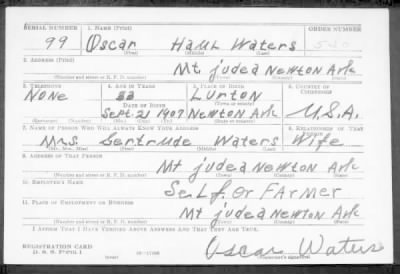 SERIAL NUMBER 1. NAME (Print) ORDER NUMBER
99 Oscar Haul Waters
(First) (Middle) (Last)
2. ADDRESS (Print)
Mt judea Newton Ark
(Number and street or R. F. D. number) (Town) (County) (State)
3. TELEPHONE 4. AGE IN YEARS 5. PLACE OF BIRTH 6. COUNTRY OF CITIZENSHIP
None 33 Lurton
DATE OF BIRTH (Town or county)
Sept. 21 1907 Newton Ark U.S.A.
(Exchange) (Number) (Mo.) (Day) (Yr.) (State or country)
7. NAME OF PERSON WHO WILL ALWAYS KNOW YOUR ADDRESS 8. RELATIONSHIP OF THAT PERSON
Mrs. Gertrude Waters Wife
(Mr., Mrs., Miss) (First) (Middle) (Last)
9. ADDRESS OF THAT PERSON
Mt judea Newton Ark
(Number and street or R. F. D. number) (Town) (County) (State)
10. EMPLOYER'S NAME
Self or Farmer
11. PLACE OF EMPLOYMENT OR BUSINESS
Mt judea Newton Ark
(Number and street or R. F. D. number) (Town) (County) (State)
I AFFIRM THAT I HAVE VERIFIED ABOVE ANSWERS AND THAT THEY ARE TRUE.
REGISTRATION CARD
D. S. S. Form 1
Oscar Waters